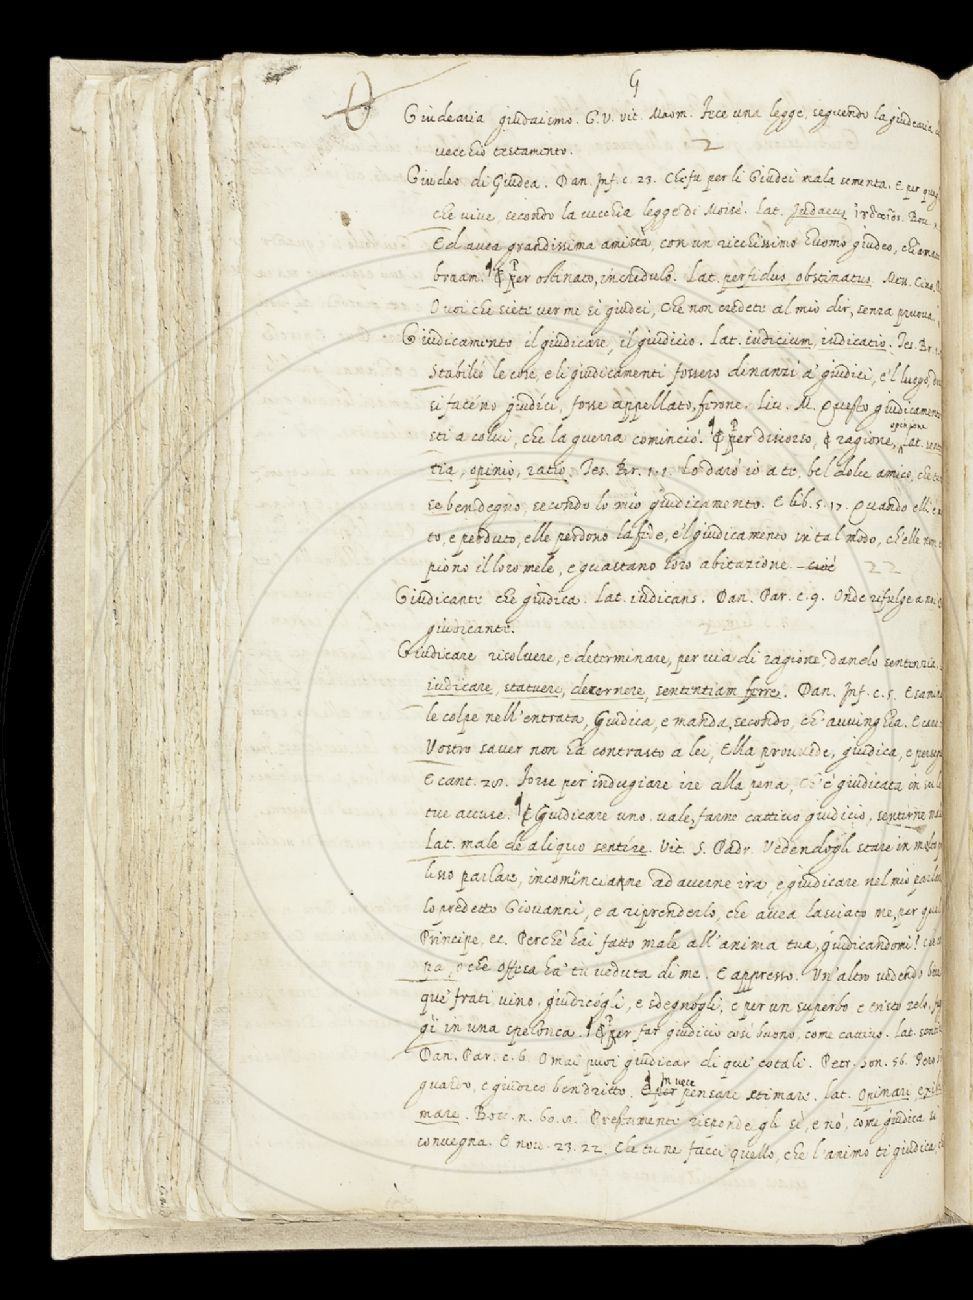 G
Giudearia giudaismo. G.V. vit. Maom. Fece una legge, seguendo la giudearia
vecchio testamento. 2
Giudeo di Giudea. Dan. Inf. c. 23. Che fu per li Giudei mala sementa. E per
che vive, secondo la vecchia legge di Moisè. Lat. Judaeus ἰουδαῖος. Bocc.
Ed avea grandissima amistà, con un ricchissimo huomo giudeo, chiamato
braam. ¶ Per ostinato, incredulo. Lat. perfidus, obstinatus.
O voi che siete ver me sì giudei, Che non credete al mio dir, senza pruova.
Giudicamento il giudicare, il giudicio. Lat. iudicium, iudicatio. Tes. Br.
Stabilìo le cose, e li giudicamenti fossero dinanzi a' giudici, e 'l luogo,
si facéno giudíci, fosse appellato, forone. Liv. M. Questo giudicamento
sti a colui, che la guerra cominciò. ¶ Per discorso, ragione, opinione Lat.
tia, opinio, ratio. Tes. Br. 1.1. Lo darò io a te, bel dolce amico, che
se ben degno, secondo lo mio giudicamento. E lib. 5. 17. Quando elli
to, e perduto, elle perdono la fede, e 'l giudicamento in tal modo, ch'elle non
piono il loro mele, e guastano loro abitazione. cioè 22
Giudicante che giudica. Lat. iudicans. Dan. Par. c. 9. Onde rifulge a noi
giudicante. 2
Giudicare risolvere, e determinare, per via di ragione, dando sentenzia.
iudicare, statuere, decernere, sententiam ferre. Dan. Inf. c. 5. Esamina
le colpe nell'entrata, Giudica, e manda, secondo, ch'avvinghia. E
Vostro saver non ha contrasto a lei, Ella provvede, giudica, e persegue
E cant. 28. Forse per indugiare ire alla pena, Ch'è giudicata in su le
tue accuse. ¶ Giudicare uno. vale, farne cattivo giudicio, sentirne
Lat. male de aliquo sentire. Vit. S. Padr. Vedendogli stare in
lisso parlare, incominciarne ad averne ira, e giudicare nel mio
lo predetto Giovanni, e a riprenderlo, che avea lasciato me, per
Principe, ec. Perchè hai fatto male all'anima tua, giudicandomi!
che offesa ha' tu veduta di me. E appresso. Un' altro vedendo
que' frati vino, giudicógli, e sdegnógli, e per un superbo e tristo zelo,
gì in una spelonca. ¶ Per far giudicio così buono, come cattivo. Lat.
Dan. Par. c. 6. Omai puoi giudicar di que' cotali. Petr. son. 56. Però
guardo, e giudico ben dritto. In vece pensare stimare. Lat. Opinari,
mare. Bocc. n. 60. Prestamente risponde gli sì, e nò, come giudica si
convegna. E nov. 23. 22. Che tu ne facci quello, che l'animo ti giudica,